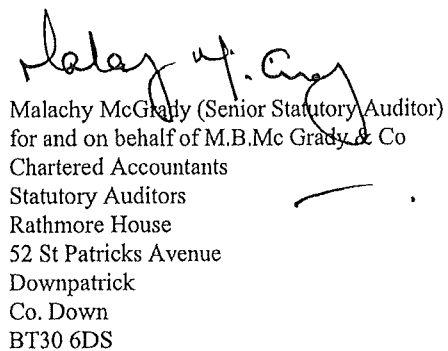 Malachy McGrady (Senior Statutory Auditor)
for and on behalf of M.B.Mc Grady & Co
Chartered Accountants
Statutory Auditors
Rathmore House
52 St Patricks Avenue
Downpatrick
Co. Down
BT30 6DS